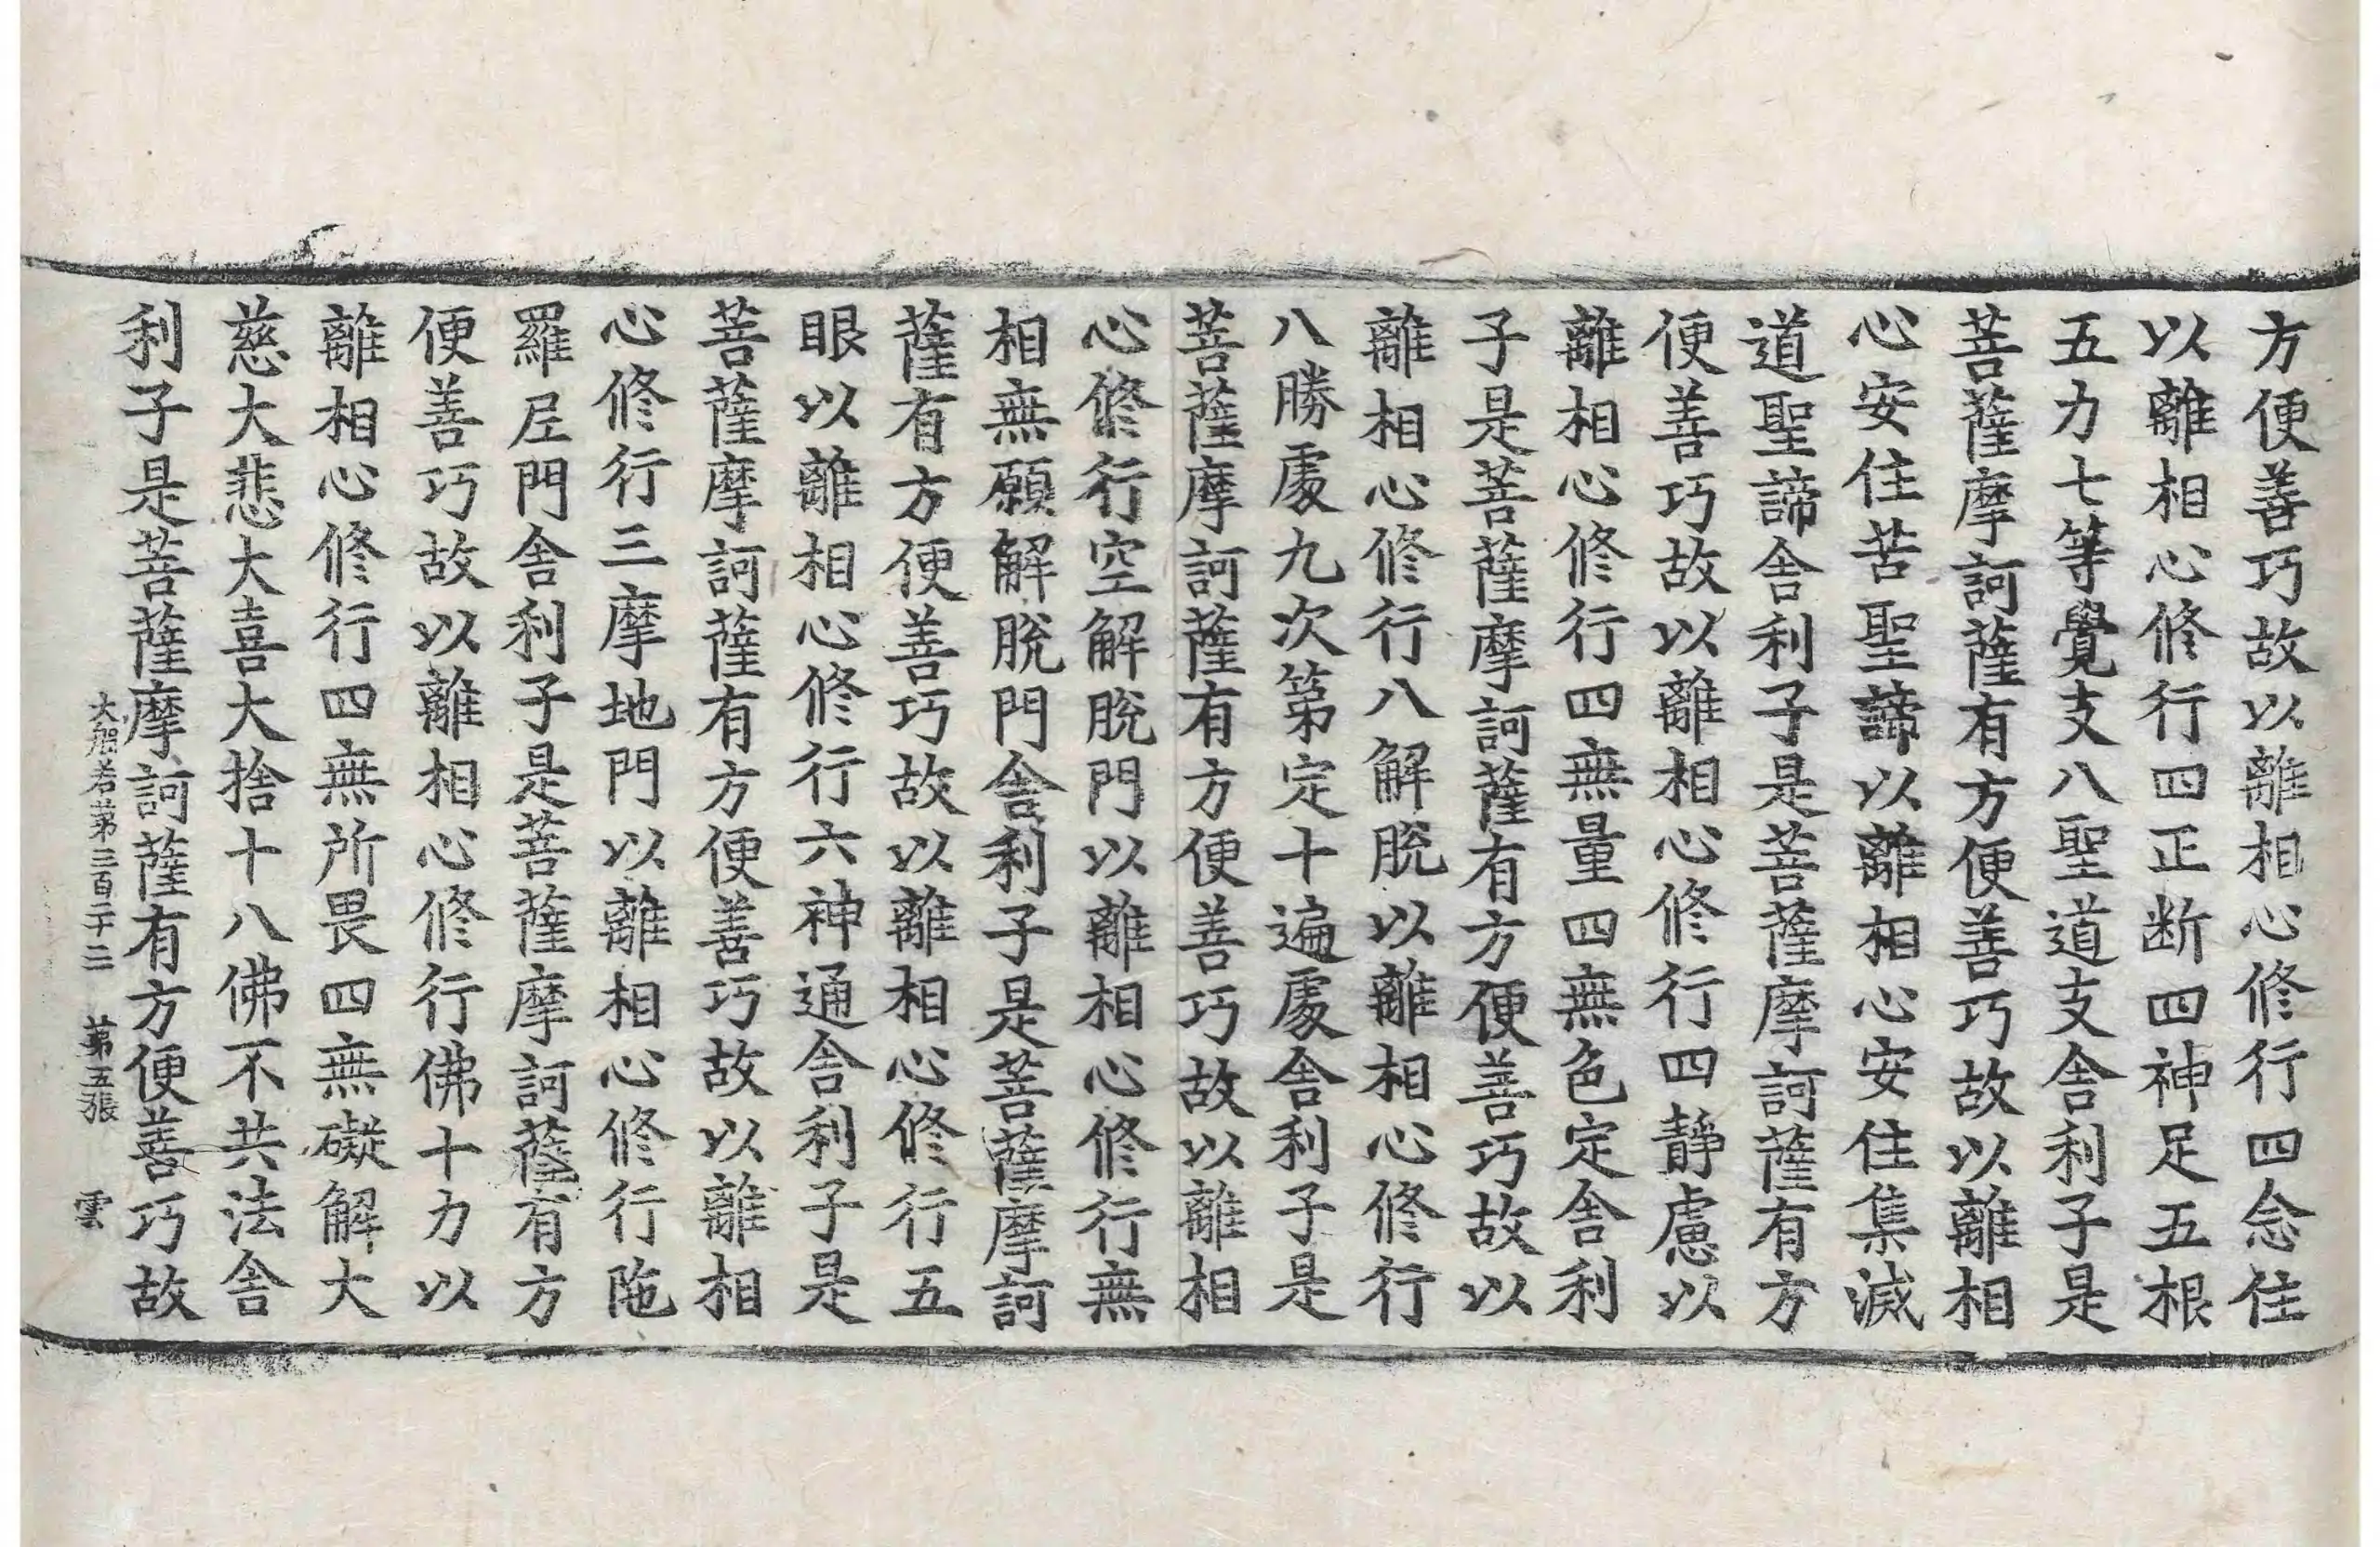 方便善巧故以離相心修行四念住
以離相心修行四正断四神足五根
五力七等覺支八聖道支舎利子是
菩薩摩訶薩有方便善巧故以離相
心安住苦聖諦以離相心安住集滅
道聖諦舎利子是菩薩摩訶薩有方
便善巧故以離相心修行四靜慮以
離相心修行四無量四無色定舎利
子是菩薩摩訶薩有方便善巧故以
離相心修行八解脫以離相心修行
八勝處九次第定十遍處舎利子是
菩薩摩訶薩有方便善巧故以離相
心修行空解脫門以離相心修行無
相無願解脫門舎利子是菩薩摩訶
薩有方便善巧故以離相心修行五
眼以離相心修行六神通舎利子是
菩薩摩訶薩有方便善巧故以離相
心修行三摩地門以離相心修行陁
羅尼門舎利子是菩薩摩訶薩有方
便善巧故以離相心修行佛十力以
離相心修行四無所畏四無礙解大
慈大悲大喜大捨十八佛不共法舎
利子是菩薩摩訶薩有方便善巧故
大般若第三百二十三 第五張 雲